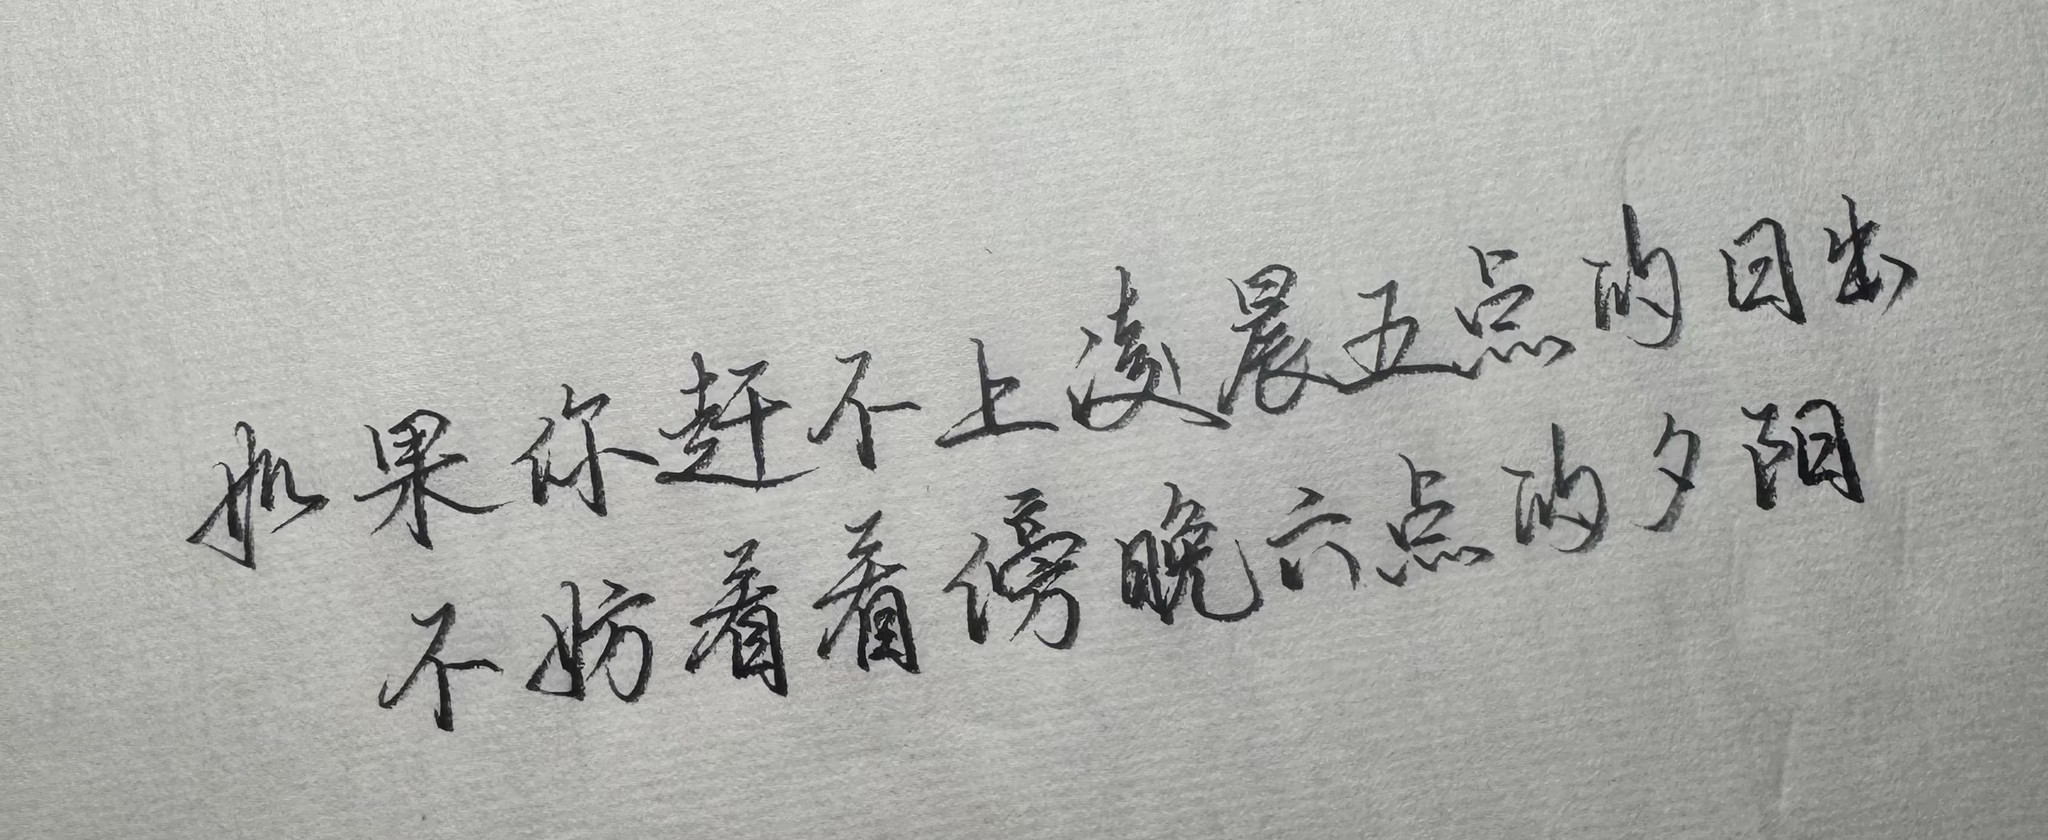 如果你赶不上凌晨五点的日出
不妨看看傍晚六点的夕阳